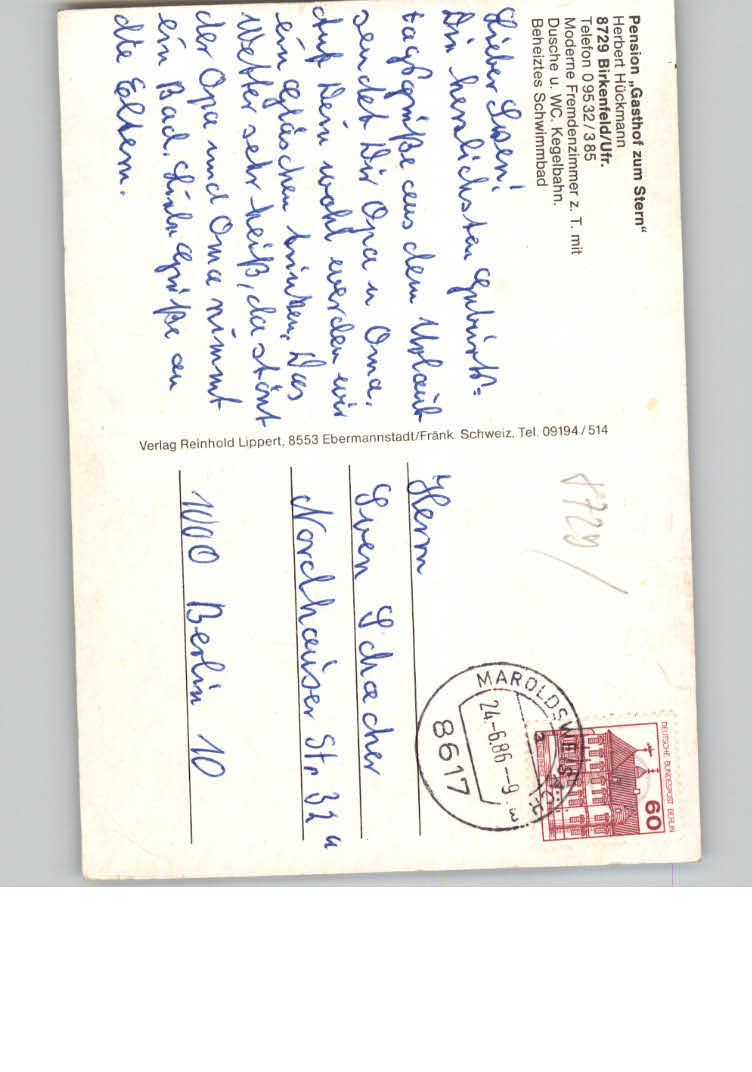 Pension „Gasthof zum Stern"
Herbert Hückmann
8729 Birkenfeld/Ufr.
Telefon 0 95 32 / 3 85
Moderne Fremdenzimmer z. T. mit
Dusche u. WC. Kegelbahn.
Beheiztes Schwimmbad
Lieber Sven!
Die herzlichsten Geburts-
tagsgrüße aus dem Urlaub
sendet Dir Opa u Oma.
Auf Dein wohl werden wir
ein Gläschen trinken. Das
Wetter sehr heiß, da stöhnt
der Opa und Oma nimmt
ein Bad. Grüße an
die Eltern.
Verlag Reinhold Lippert, 8553 Ebermannstadt/Fränk. Schweiz, Tel. 09194 / 514
8729
Herrn
Sven Schacher
Nordhauser Str 32a
1000 Berlin 10
MAROLDSWEISACH
a
24.-6.86.-9
8617
DEUTSCHE BUNDESPOST BERLIN
60